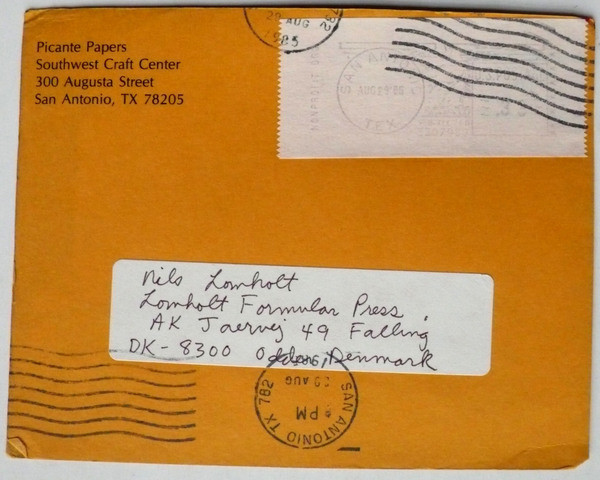 Picante Papers
Southwest Craft Center
300 Augusta Street
San Antonio, TX 78205
29 AUG
1985
782
SAN ANTONIO
AUG 29'85
TEX
NONPROFIT ORG
Nils Lomholt
Lomholt Formular Press,
AK Jaervej 49 Falling
DK-8300 Odder, Denmark
1985
29 AUG
PM
SAN ANTONIO TX 782